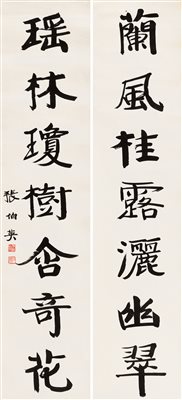 蘭風桂露灑幽翠
瑶林瓊樹含奇花
張伯英